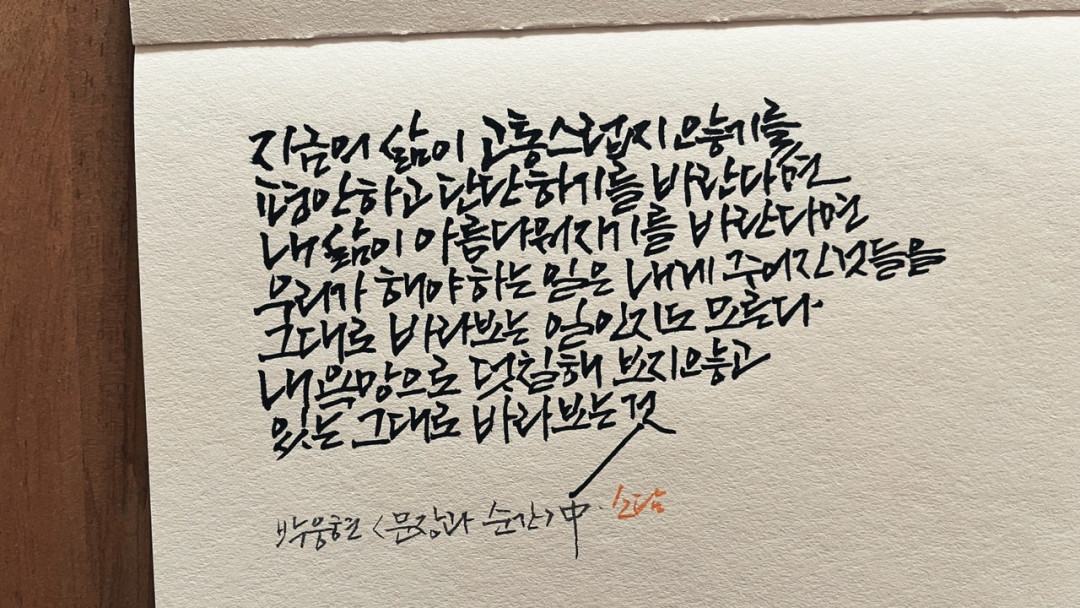 지금의 삶이 고통스럽지 않기를
평안하고 단단하기를 바란다면
내 삶이 아름다워지기를 바란다면
우리가 해야하는 일은 내게 주어진것들을
그대로 바라보는 일인지도 모른다.
내 욕망으로 덧칠해 보지않고
있는 그대로 바라보는것
박웅현 <문장과 순간> 中. 소담